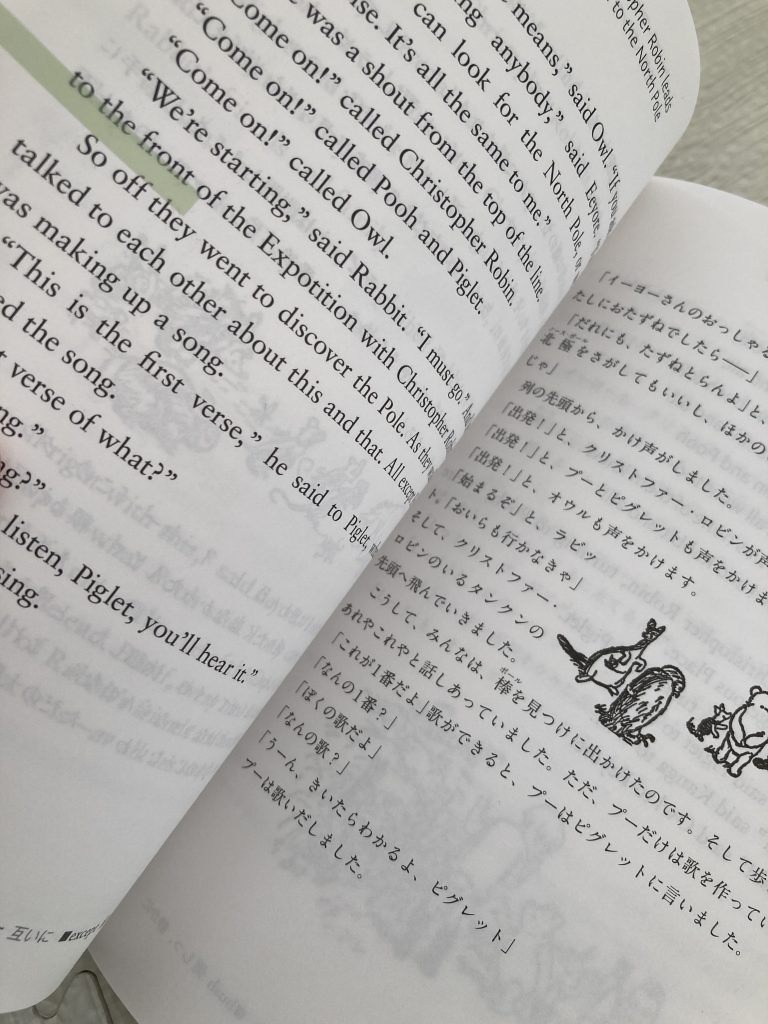 pher Robin leads
to the North Pole
means," said Owl. "If you
ng anybody," said Eeyore,
can look for the North Pole, or
se. It's all the same to me."
e was a shout from the top of the line.
Come on!" called Christopher Robin.
"Come on!" called Pooh and Piglet.
"Come on!" called Owl.
"We're starting," said Rabbit. "I must go." And
to the front of the Expotition with Christopher Ro
So off they went to discover the Pole. As they
talked to each other about this and that. All excep
was making up a song.
"This is the first verse," he said to Piglet,
ed the song.
t verse of what?"
ng."
ng?"
listen, Piglet, you'll hear it."
sing.
互いに ■except
「イーヨーさんのおっしゃる
たしにおたずねでしたら——」
「だれにも、たずねとらんよ」と、
北極をさがしてもいいし、ほかの
じゃ」
列の先頭から、かけ声がしました。
「出発!」と、クリストファー・ロビンが声
「出発!」と、プーとピグレットも声をかけま
「出発!」と、オウルも声をかけます。
「始まるぞ」と、ラビッ
ト。「おいらも行かなきゃ」
そして、クリストファー・
ロビンのいるタンクンの
先頭へ飛んでいきました。
こうして、みんなは、棒を見つけに出かけたのです。そして歩
あれやこれやと話しあっていました。ただ、プーだけは歌を作ってい
「これが1番だよ」歌ができると、プーはピグレットに言いました。
「なんの1番?」
「ぼくの歌だよ」
「なんの歌?」
「うーん、きいたらわかるよ、ピグレット」
プーは歌いだしました。